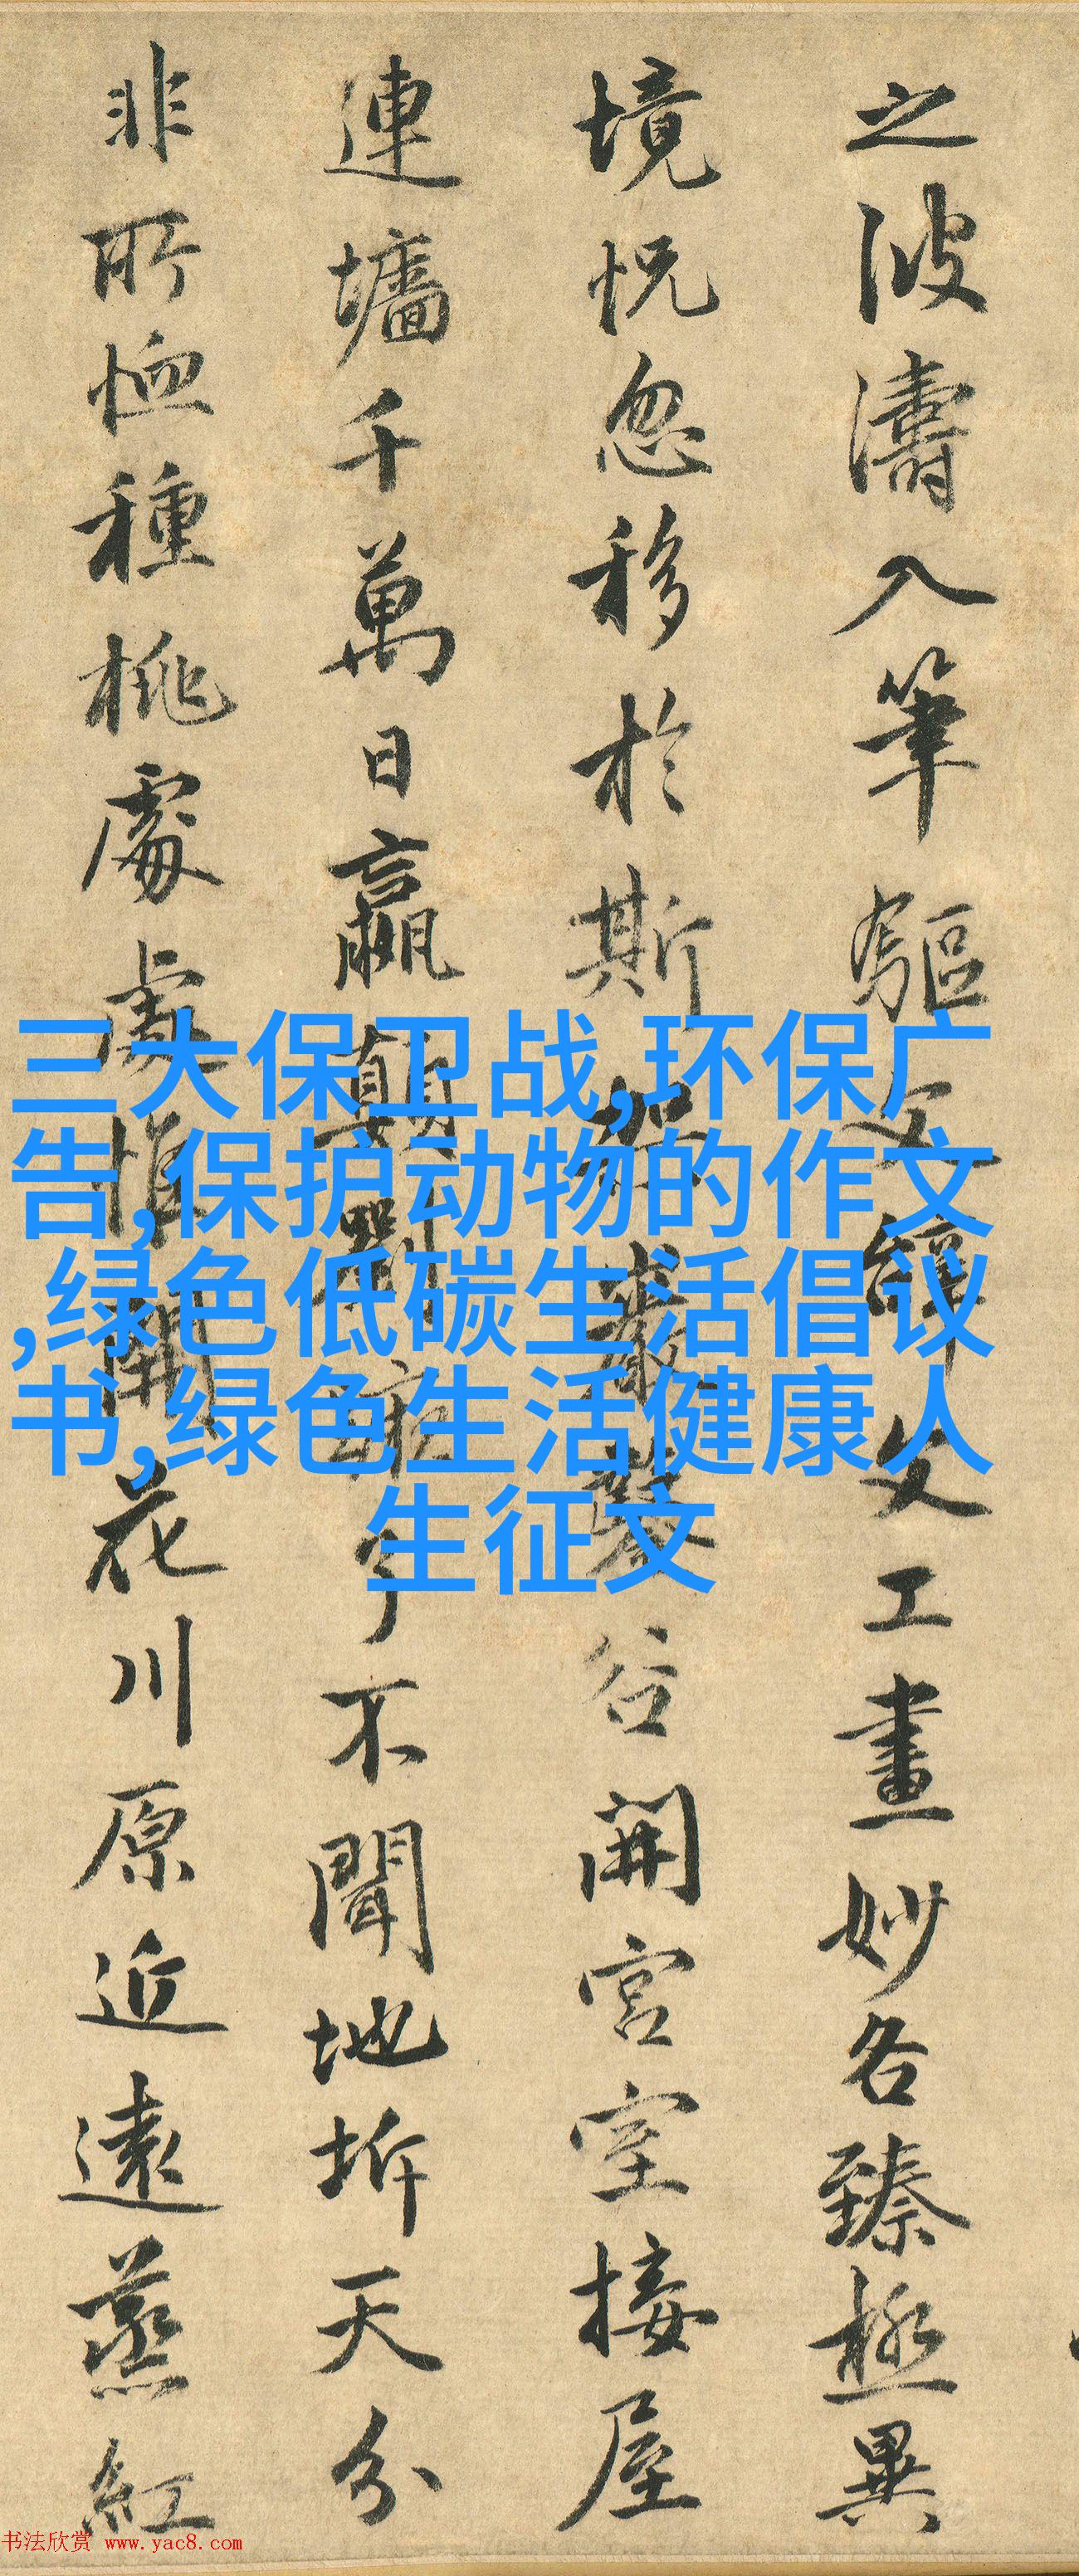 之波濤入筆驅文辭文工畫妙各臻極異
境怳忽移於斯架巖鑿谷開宮室接屋
連墻千萬日嬴顛劉蹶了不聞地坼天分
非所恤種桃處處惟開花川原近遠蒸紅
三大保卫战,环保广
告,保护动物的作文
,绿色低碳生活倡议
书,绿色生活健康人
生征文
书法欣赏 www.yac8.com